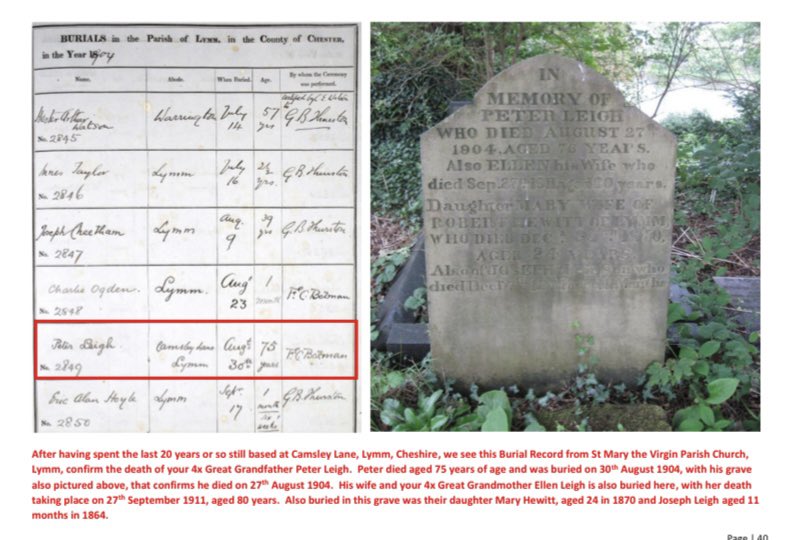 BURIALS in the Parish of LYMM, in the County of CHESTER,
in the Year 1904
Name. Abode. When Buried. Age. By whom the Ceremony was performed.
Watson Warrington July 14 57 yrs G B Thurston
No. 2845
Taylor Lymm July 16 yrs. G B Thurston
No. 2846
Joseph Cheetham Lymm Aug. 9 39 yrs G B Thurston
No. 2847
Charlie Ogden. Lymm. Augt 23 1 month
No. 2848
Peter Leigh. Camsley Lane Lymm Augt 30th 75 years
No. 2849
Eric Alan Hoyle Lymm Sept. 17 1 month G B Thurston
No. 2850
IN
MEMORY OF
PETER LEIGH
WHO DIED AUGUST 27
1904, AGED 76 YEARS.
Also ELLEN his Wife who
died Sep. 27 aged 80 years.
Daughter MARY WIFE OF
ROBERT HEWITT OF LYMM
WHO DIED DEC
AGED 24 YEARS
Also of JOSEPH who
died Dec
After having spent the last 20 years or so still based at Camsley Lane, Lymm, Cheshire, we see this Burial Record from St Mary the Virgin Parish Church,
Lymm, confirm the death of your 4x Great Grandfather Peter Leigh. Peter died aged 75 years of age and was buried on 30th August 1904, with his grave
also pictured above, that confirms he died on 27th August 1904. His wife and your 4x Great Grandmother Ellen Leigh is also buried here, with her death
taking place on 27th September 1911, aged 80 years. Also buried in this grave was their daughter Mary Hewitt, aged 24 in 1870 and Joseph Leigh aged 11
months in 1864.
Page | 40